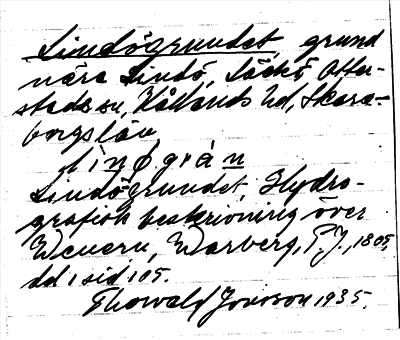 Lindögrundet, grund
nära Lindö, Läckö, Otter-
stads sn, Kållands hd, Skara-
borgs län
lìnøgràn
Lindögrundet, Hydro-
grafisk beskrivning över
Wenern, Warberg, P.J., 1805,
del 1 sid 105.
Thorwald Jonsson 1935.